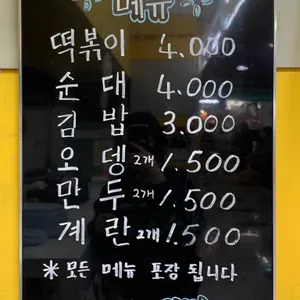 메뉴
떡볶이 4.000
순대 4.000
김밥 3.000
오뎅 2개 1.500
만두 2개 1.500
계란 2개 1.500
※ 모든 메뉴 포장 됩니다